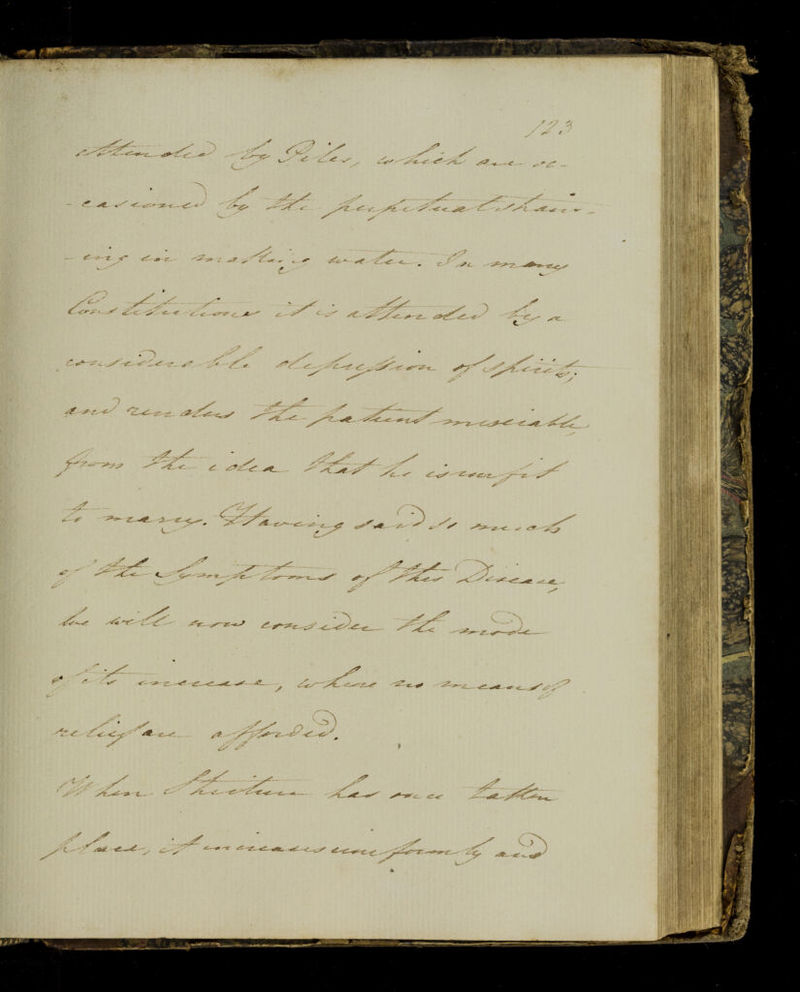 123
attended by Piles, which are oc-
-casioned by the perpetual strain-
-ing in making water. In many
Constitutions it is attended by a
considerable depression of spirits;
and renders the patient miserable,
from the idea that he is unfit
to marry. Having said so much
of the Symptoms of this Disease,
we will now consider the mode
of its increase, where no means of
relief are afforded.
When Stricture has once taken
place, it increases uniformly and